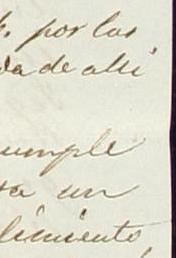 por las
da de alli
cumple
sa un
limiento,